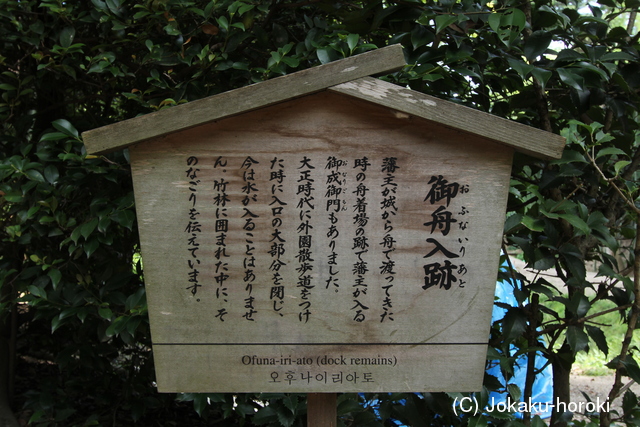 御舟入跡
おふないりあと
藩主が城から舟で渡ってきた
時の舟着場の跡で藩主が入る
御成御門もありました。
おなりもん
大正時代に外園散歩道をつけ
た時に入口の大部分を閉し、
今は水が入ることはありませ
ん。竹林に囲まれた中に、そ
のなごりを伝えています。
Ofuna-iri-ato (dock remains)
오후나이리아토
(C) Jokaku-horoki